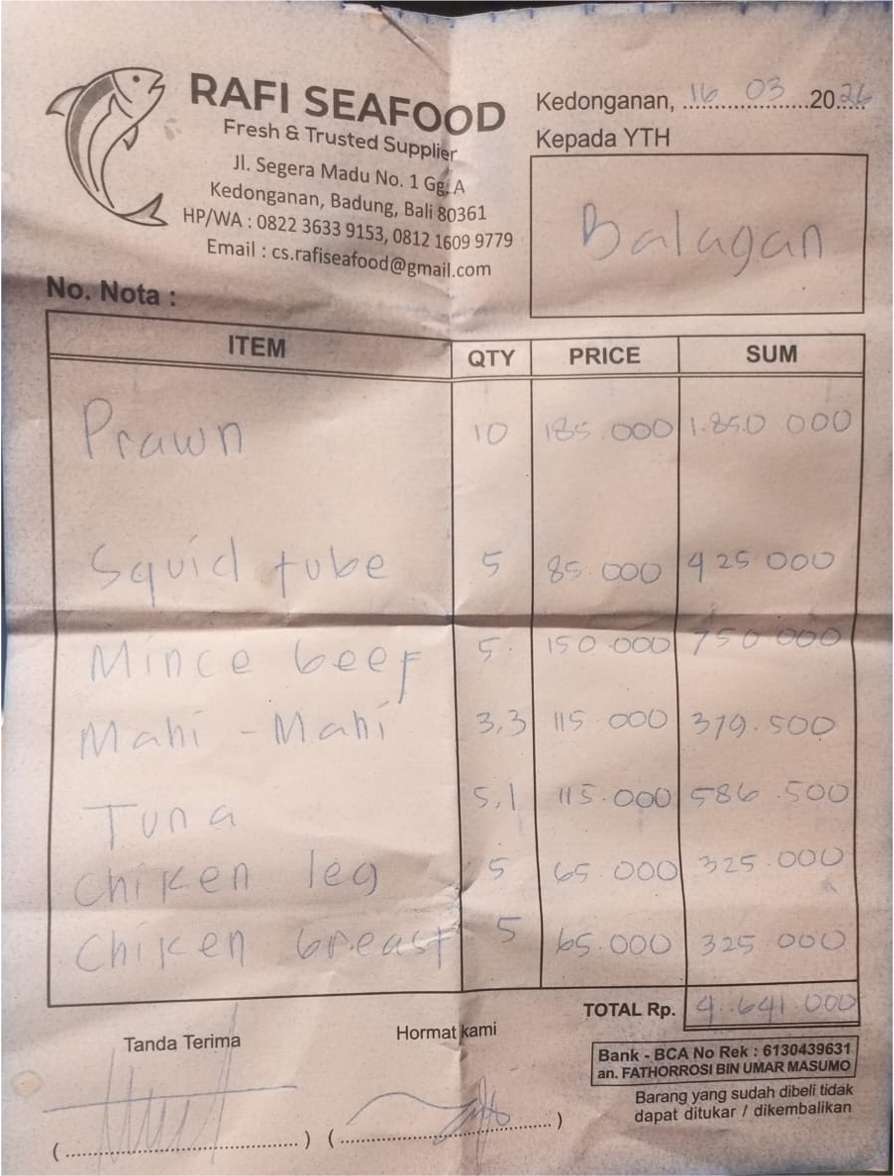 RAFI SEAFOOD
Fresh & Trusted Supplier
Jl. Segera Madu No. 1 Gg. A
Kedonganan, Badung, Bali 80361
HP/WA : 0822 3633 9153, 0812 1609 9779
Email : cs.rafiseafood@gmail.com
Kedonganan, 16 03 2026
Kepada YTH
Balagan
No. Nota :
ITEM QTY PRICE SUM
Prawn 10 185.000 1.850 000
Squid tube 5 85.000 425 000
Mince beef 5 150.000 750 000
Mahi - Mahi 3,3 115 000 379.500
Tuna 5,1 115.000 586.500
Chiken leg 5 65.000 325.000
Chiken breast 5 65.000 325 000
TOTAL Rp. 4.641.000
Tanda Terima Hormat kami
Bank - BCA No Rek : 6130439631
an. FATHORROSI BIN UMAR MASUMO
Barang yang sudah dibeli tidak
dapat ditukar / dikembalikan